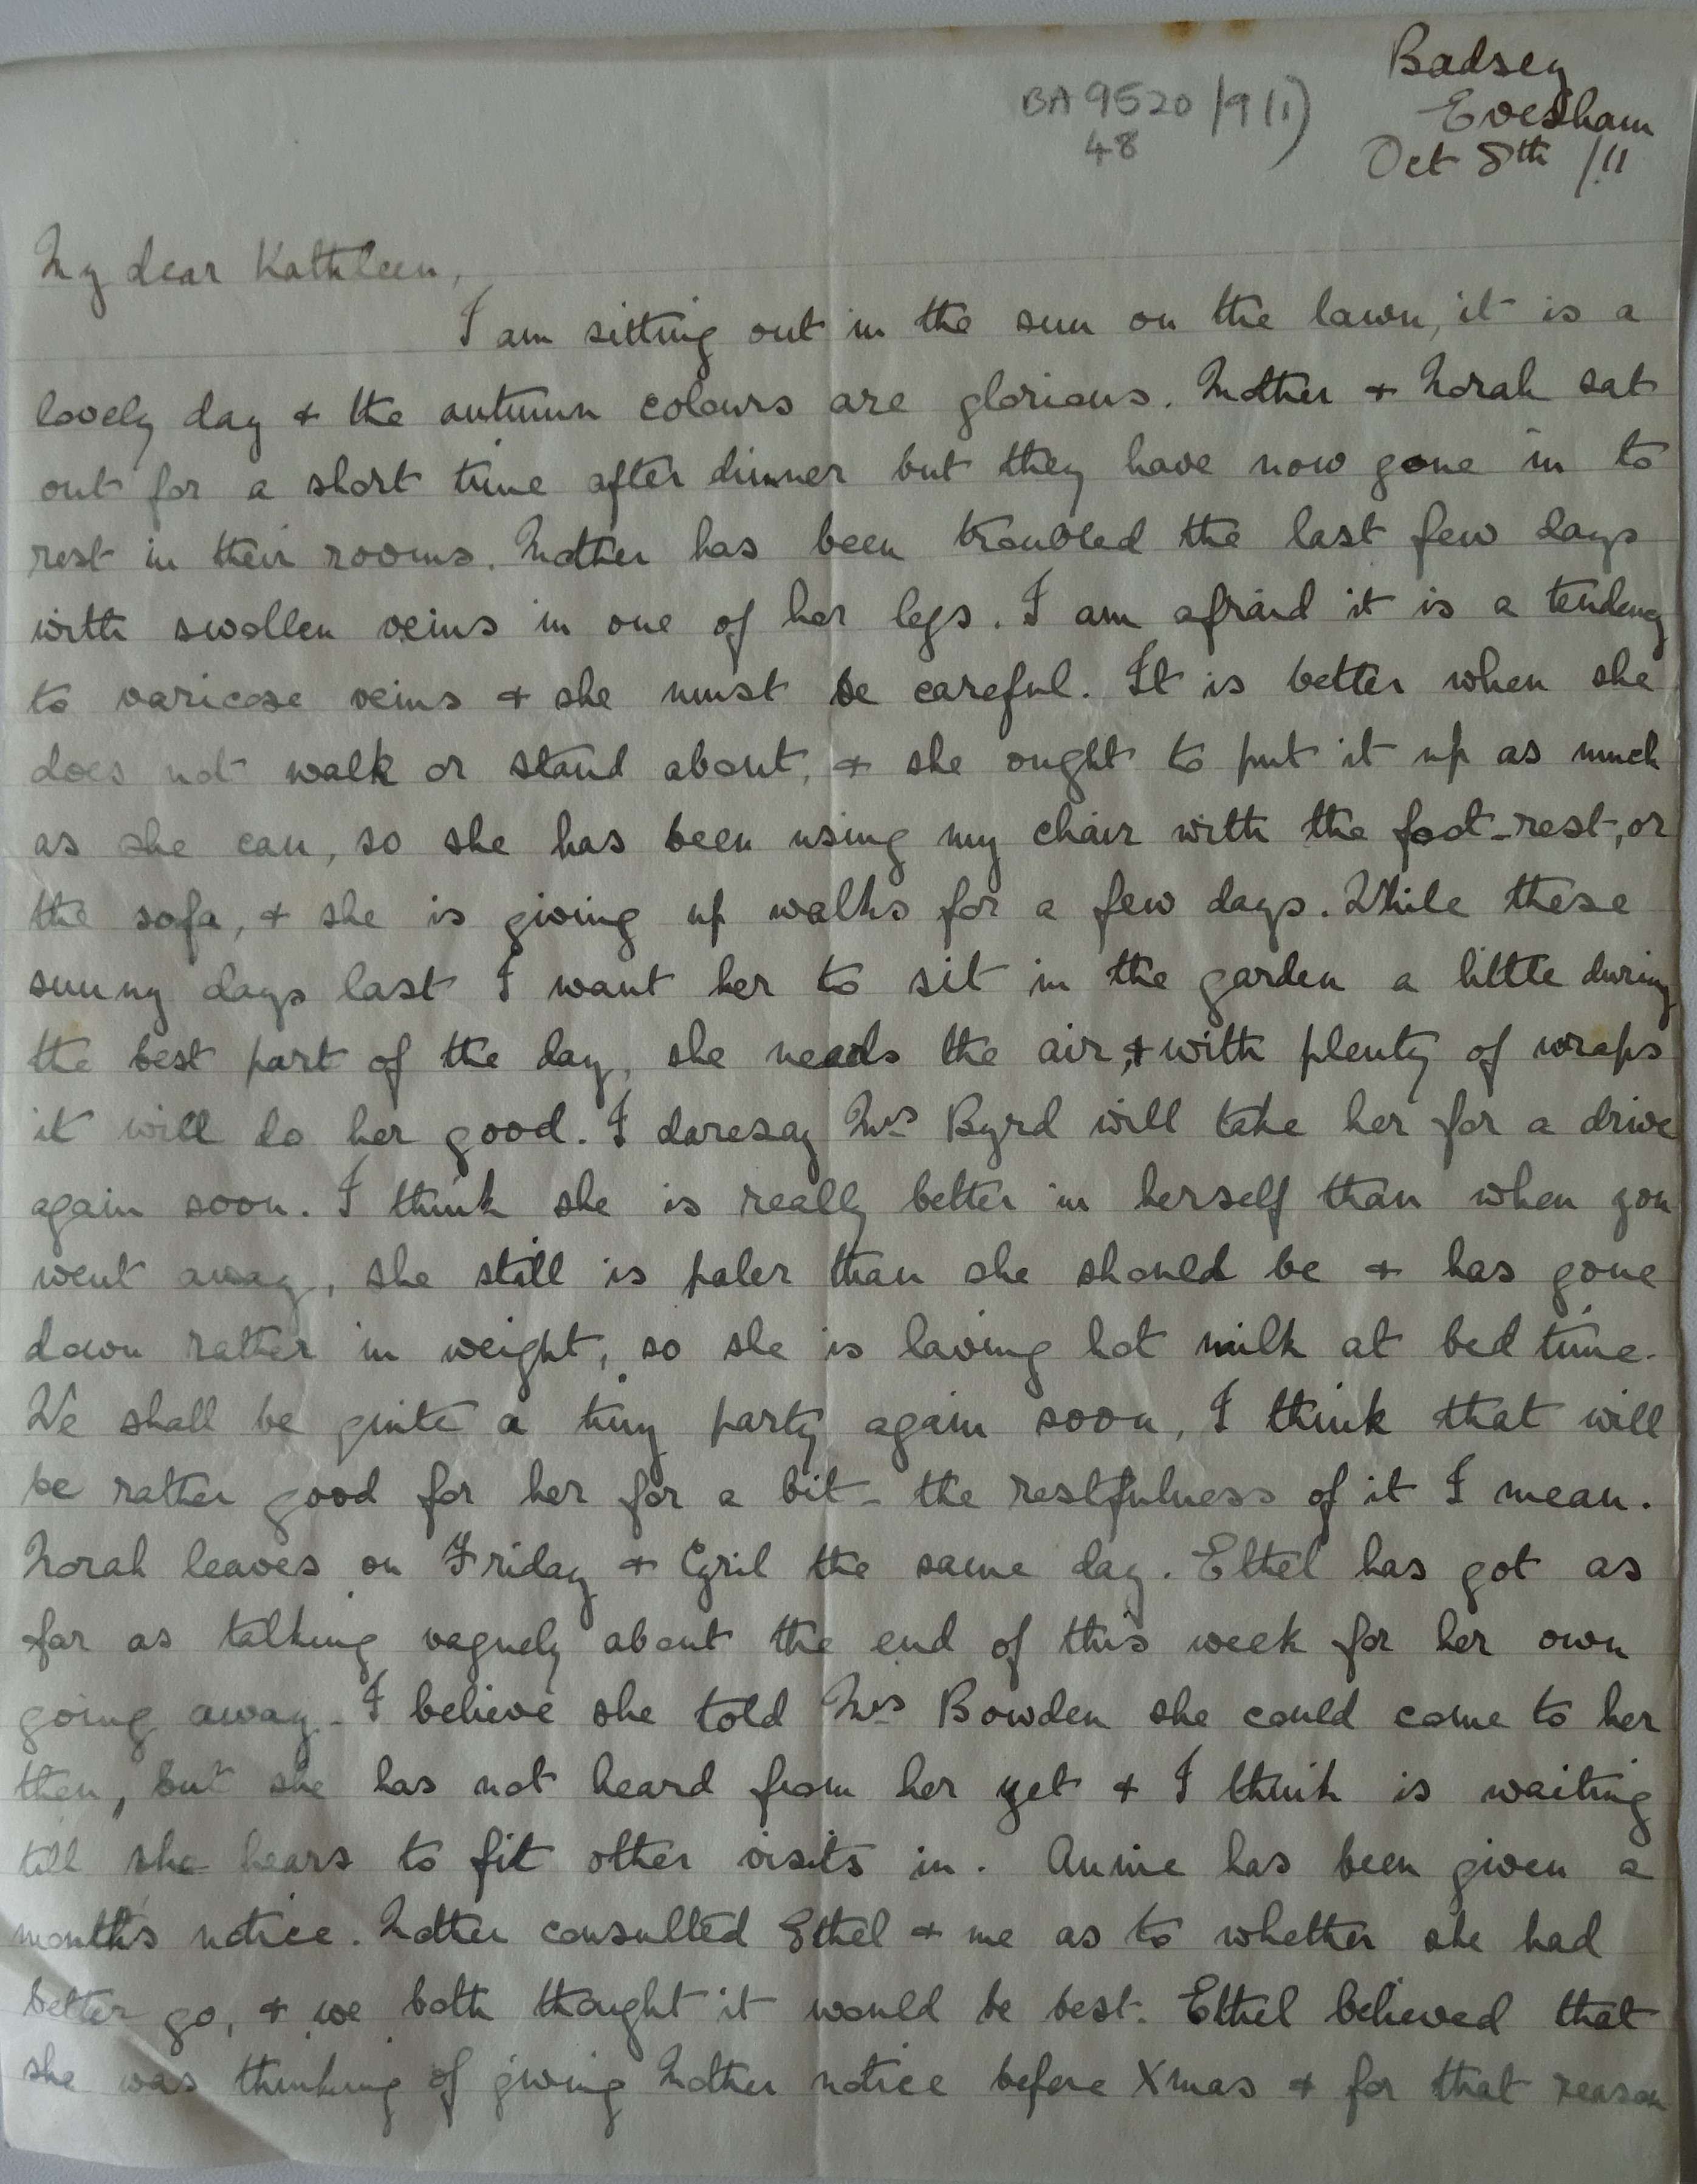 Badsey
BA 9520/9(1)
Evesham
48
Oct 8th /11
My dear Kathleen,
I am sitting out in the sun on the lawn, it is a
lovely day & the autumn colours are glorious. Mother & Norah sat
out for a short time after dinner but they have now gone in to
rest in their rooms. Mother has been troubled the last few days
with swollen veins in one of her legs. I am afraid it is a tendency
to varicose veins & she must be careful. It is better when she
does not walk or stand about, & she ought to put it up as much
as she can, so she has been using my chair with the foot-rest, or
the sofa, & she is giving up walks for a few days. While these
sunny days last I want her to sit in the garden a little during
the best part of the day, she needs the air, & with plenty of wraps
it will do her good. I daresay Mrs Byrd will take her for a drive
again soon. I think she is really better in herself than when you
went away, she still is paler than she should be & has gone
down rather in weight, so she is having hot milk at bed time.
We shall be quite a tiny party again soon, I think that will
be rather good for her for a bit - the restfulness of it I mean.
Norah leaves on Friday & Cyril the same day. Ethel has got as
far as talking vaguely about the end of this week for her own
going away - I believe she told Mrs Bowden she could come to her
then, but she has not heard from her yet & I think is waiting
till she hears to fit other visits in. Annie has been given a
month's notice. Mother consulted Ethel & me as to whether she had
better go, & we both thought it would be best. Ethel believed that
she was thinking of giving Mother notice before Xmas & for that reason